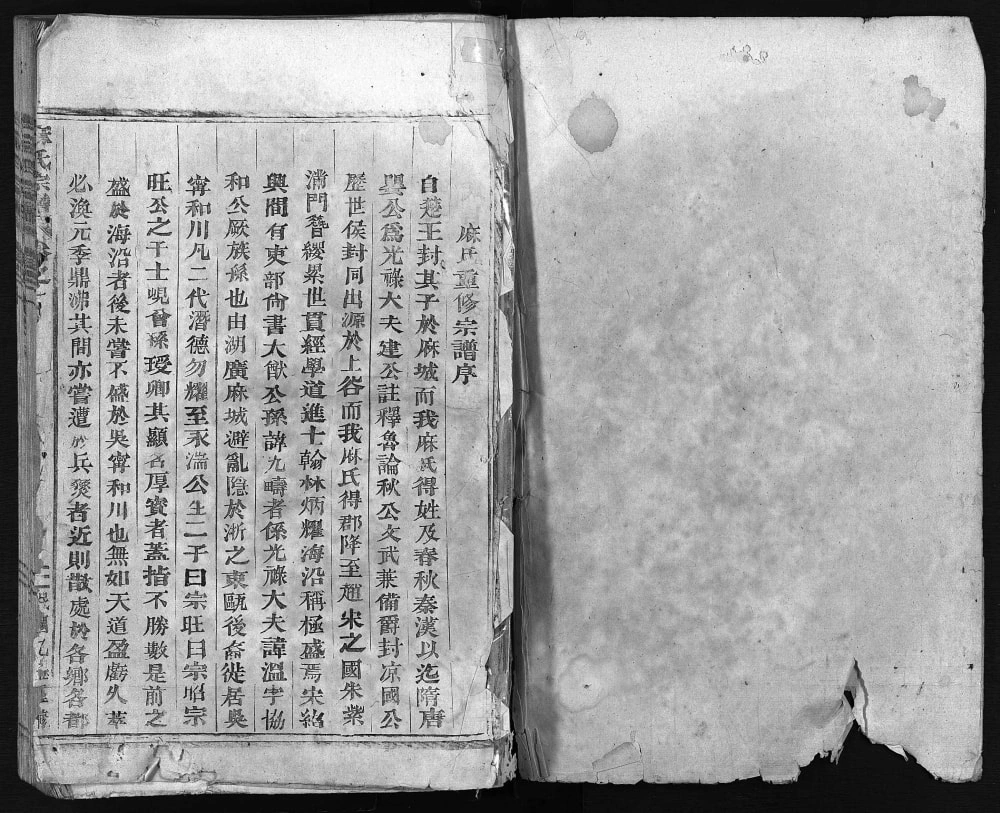 麻氏重修宗譜序
自楚王封其子於麻城而我麻氏得姓及春秋秦漢以迄隋唐
公爲光祿大夫建公註釋魯論秋公文武兼備爵封凉國公
歷世侯封同出源於上谷而我麻氏得郡降至趙宋之國朱紫
滿門簪纓累世貫經學道進士翰林炳耀海沿稱極盛焉宋紹
興間有吏部尙書大猷公孫諱九疇者係光祿大夫諱溫字協
和公厥族孫也由湖廣麻城避亂隐於浙之東甌後裔徙居吳
寧和川凡二代潛德勿耀至永湍公生二子曰宗旺曰宗昭宗
旺公之子士晛曾孫璦卿其顯名厚實者蓋指不勝數是前之
盛於海沿者後未嘗不盛於吳寧和川也無如天道盈虧久萃
必渙元季鼎沸其間亦嘗遭於兵燹者近則散處於各鄉各都
氏宗譜